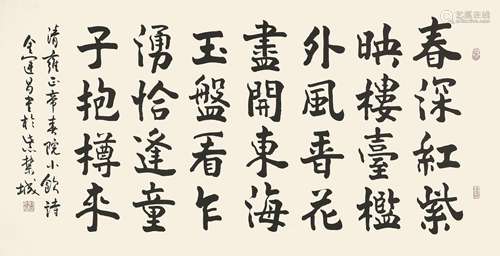 春深紅紫
映樓臺檻
外風晉花
盡開東海
玉盤看乍
湧恰逢童
子抱樽来
清雍正帝春院小飲詩
金運昌書於紫禁城